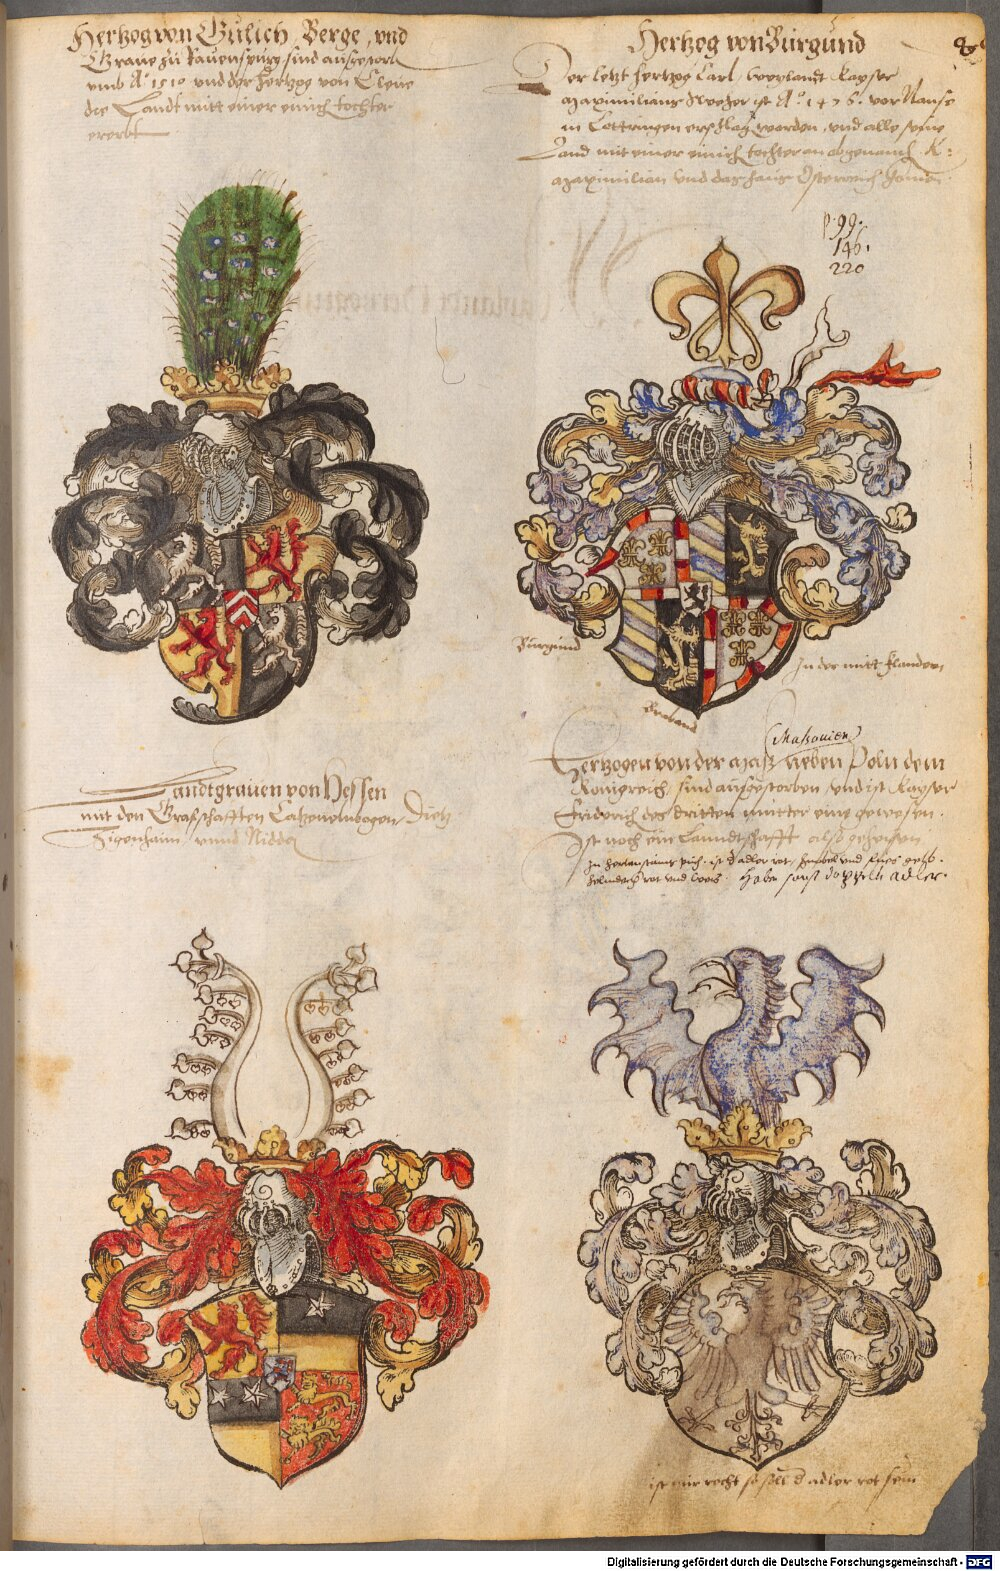 Hertzog von Gulich, Berge, und
Grave zu Ravenspurg sind ausgestorb
umb Aº 1510 und der Hertzog von Cleve
die Landt mitt einer einich tochter
ererbt
Hertzog von Burgund
Der letzt Hertzog Carl, weylandt Kayser
Maximilians Aº 1476. vor Nanse
in Lottringen erschlag worden, und alle seine
Land mit einer einich tochter an obgenant K:
Maximilian und das haus Osterreich
p. 99.
146.
220
Burgund
Braband
In der mitt Flandern
Landtgraven von Hessen
mit den Graffschafften Catzenelnbogen, Dietz
Zigenhaim, unnd Nidda
(Massouien)
Hertzogen von der Mass neben Poln dem
Königreich, sind ausgestorben, und ist Kayser
Friderich des dritten mutter eine gewesen.
Ist noch ein Lanndtschafft also geheissen
ist d adler rot, schnabel und fües gelb.
helmdeck rot und weis. Haben sonst doppeln adler.
ist nur recht so soll d adler rot sein
Digitalisierung gefördert durch die Deutsche Forschungsgemeinschaft - DFG